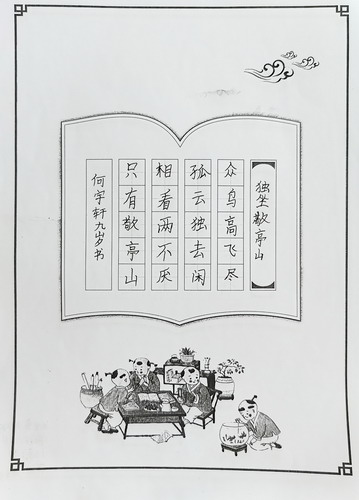 独坐敬亭山
众鸟高飞尽
孤云独去闲
相看两不厌
只有敬亭山
何宇轩九岁书